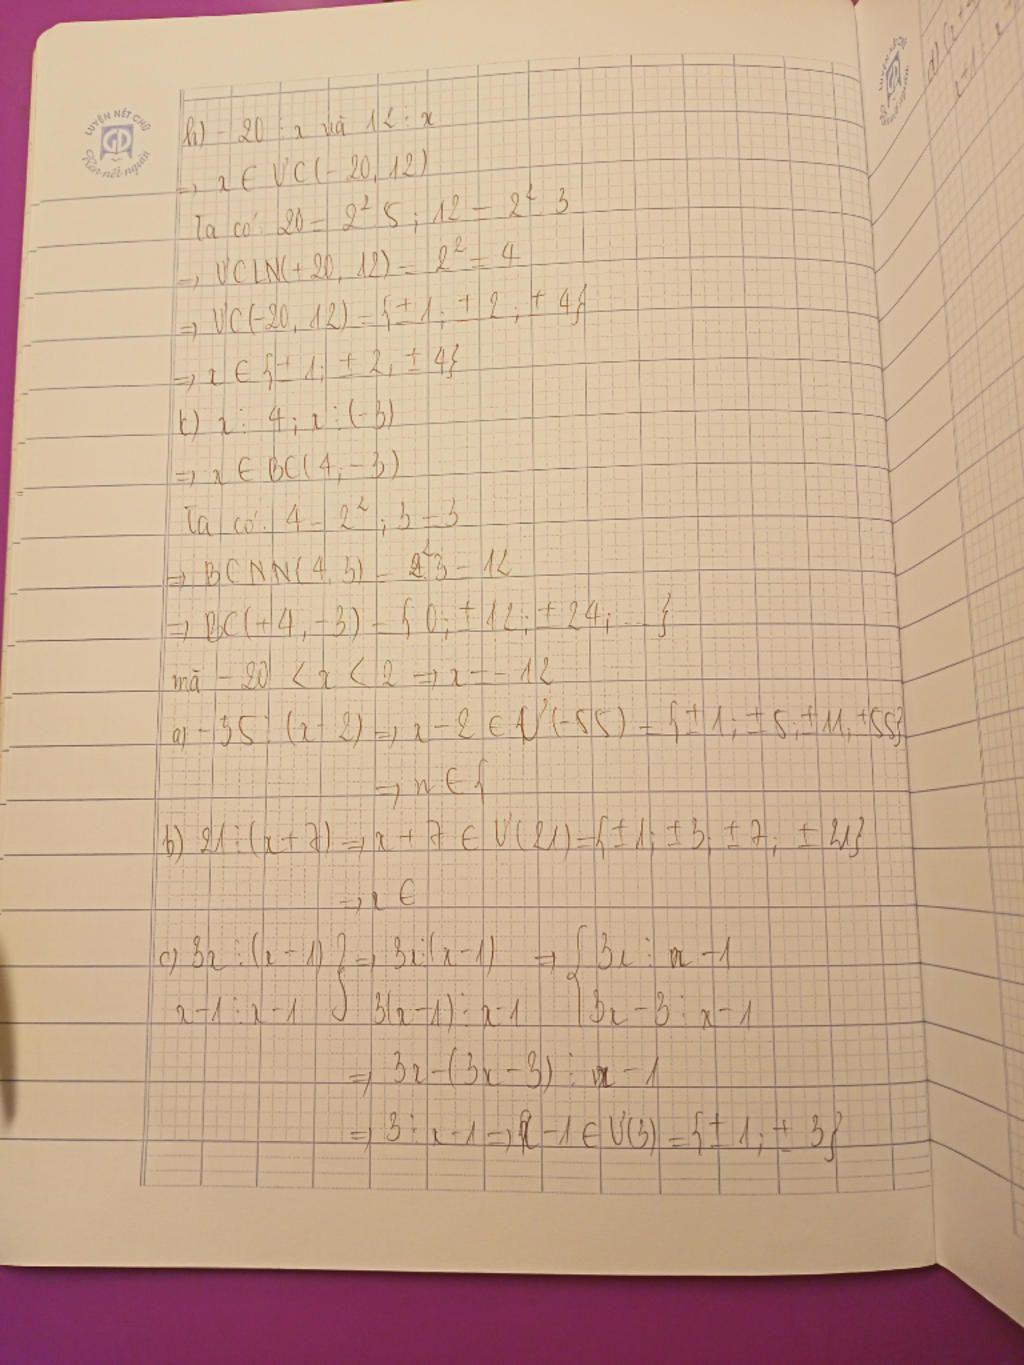 LUYỆN NÉT CHỮ
GD
Rèn nết người
h) -20 ⋮ x và 12 ⋮ x
⇒ x ∈ ƯC(-20, 12)
Ta có: 20 = 2² 5 ; 12 = 2² 3
⇒ ƯCLN(+20, 12) = 2² = 4
⇒ ƯC(-20, 12) = {±1; ±2; ±4}
⇒ x ∈ {±1; ±2; ±4}
t) x ⋮ 4; x ⋮ (-3)
⇒ x ∈ BC(4; -3)
Ta có: 4 = 2²; 3 = 3
⇒ BCNN(4, 3) = 2²3 = 12
⇒ BC(+4, -3) = {0; ±12; ±24; ...}
mà -20 < x < 2 ⇒ x = -12
a) -35 ⋮ (x - 2) ⇒ x - 2 ∈ Ư(-55) = {±1; ±5; ±11; ±55}
⇒ n ∈ {
b) 21 ⋮ (x + 7) ⇒ x + 7 ∈ Ư(21) = {±1; ±3; ±7; ±21}
⇒ x ∈
c) 3x ⋮ (x - 1) } ⇒ 3x ⋮ (x - 1) ⇒ { 3x ⋮ x - 1
x - 1 ⋮ x - 1 } 3(x - 1) ⋮ x - 1 { 3x - 3 ⋮ x - 1
⇒ 3x - (3x - 3) ⋮ x - 1
⇒ 3 ⋮ x - 1 ⇒ x - 1 ∈ Ư(3) = {±1; ±3}